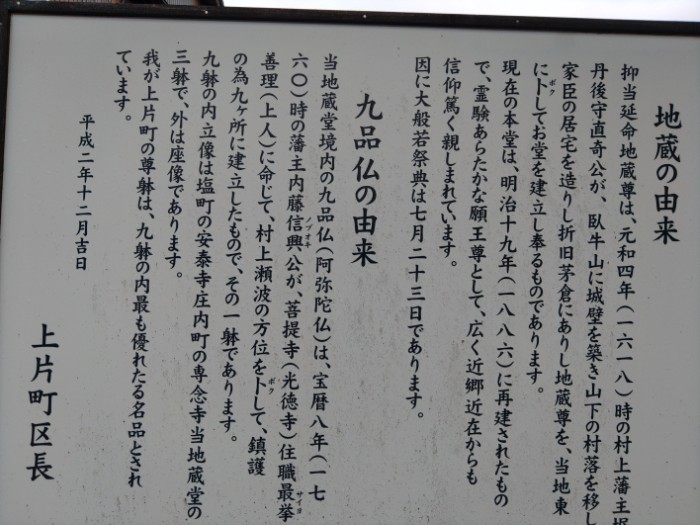 地蔵の由来
抑当延命地蔵尊は、元和四年(一六一八)時の村上藩主堀
丹後守直奇公が、臥牛山に城壁を築き山下の村落を移し
家臣の居宅を造りし折旧茅倉にありし地蔵尊を、当地東
に卜してお堂を建立し奉るものであります。
ボク
現在の本堂は、明治十九年(一八八六)に再建されたもの
で、霊験あらたかな願王尊として、広く近郷近在からも
信仰篤く親しまれています。
因に大般若祭典は七月二十三日であります。
九品仏の由来
当地蔵堂境内の九品仏(阿弥陀仏)は、宝暦八年(一七
六〇)時の藩主内藤信興公が、菩提寺(光徳寺)住職最挙
ノブオキ
サイヨ
善理(上人)に命じて、村上瀬波の方位を卜して、鎮護
ボク
の為九ヶ所に建立したもので、その一躰であります。
九躰の内立像は塩町の安泰寺庄内町の専念寺当地蔵堂の
三躰で、外は座像であります。
我が上片町の尊躰は、九躰の内最も優れたる名品とされ
ています。
平成二年十二月吉日
上片町区長